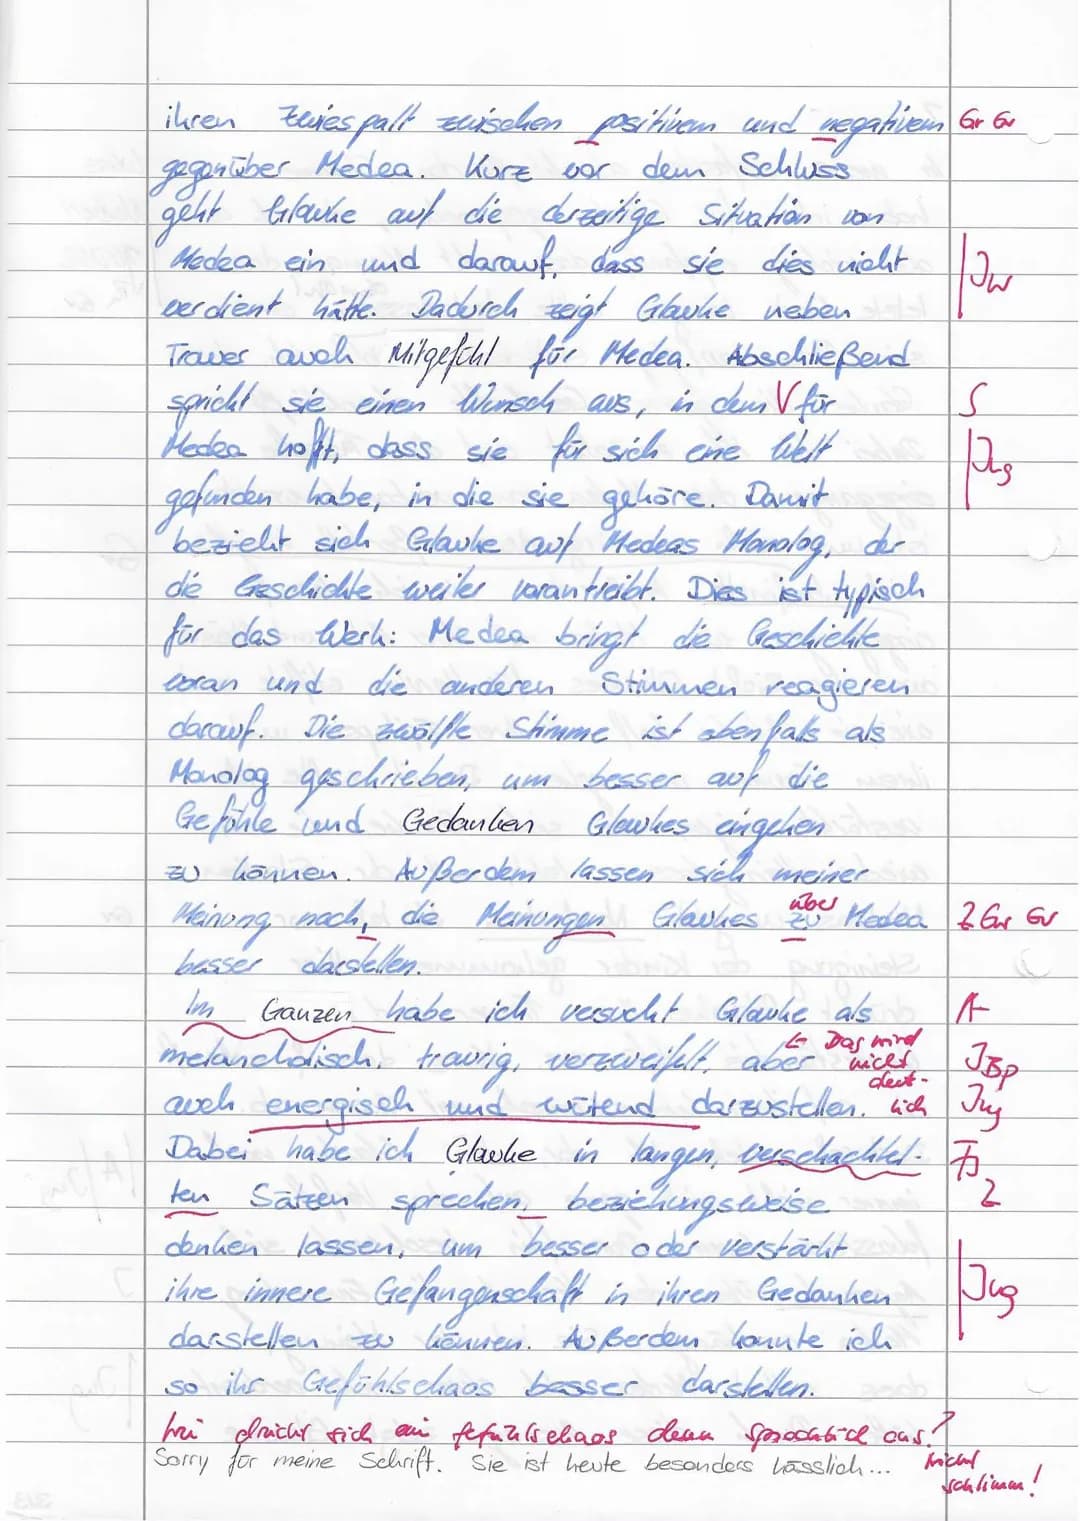 ihren Zwiespalt zwischen positivem und negativem Gr Gr
gegenüber Medea. Kurz vor dem Schluss
geht Glauke auf die derzeitige Situation von
Medea ein und darauf, dass sie dies nicht
verdient hätte. Dadurch zeigt Glauke neben
Trauer auch Mitgefühl für Medea. Abschließend
spricht sie einen Wunsch aus, in dem V für S
Medea hofft, dass sie für sich eine Welt
gefunden habe, in die sie gehöre. Damit
bezieht sich Glauke auf Medeas Monolog, der
die Geschichte weiter vorantreibt. Dies ist typisch
für das Werk: Medea bringt die Geschichte
voran und die anderen Stimmen reagieren
darauf. Die zwölfte Stimme ist ebenfalls als
Monolog geschrieben, um besser auf die
Gefühle und Gedanken Glaukes eingehen
zu können. Außerdem lassen sich meiner
über
Meinung nach, die Meinungen Glaukes zu Medea Z Gr Gr
besser darstellen.
Im Ganzen habe ich versucht Glauke als A
← Das wird
melancholisch, traurig, verzweifelt, aber nicht
deut-
auch energisch und wütend darzustellen. lich
Dabei habe ich Glauke in langen, verschachtel-
ten Sätzen sprechen, beziehungsweise Z
denken lassen, um besser oder verstärkt
ihre innere Gefangenschaft in ihren Gedanken
darstellen zu können. Außerdem konnte ich
so ihr Gefühlschaos besser darstellen.
Wie drückt sich ein Gefühlschaos denn sprachlich aus?
Sorry für meine Schrift. Sie ist heute besonders hässlich... Nicht
schlimm!